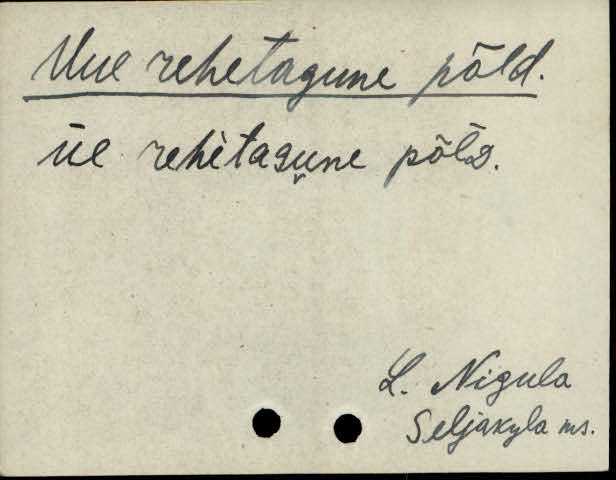 Uue rehetagune põld.
ūe rehètagune põlᴅ.
L. Nigula
Seljakyla ms.